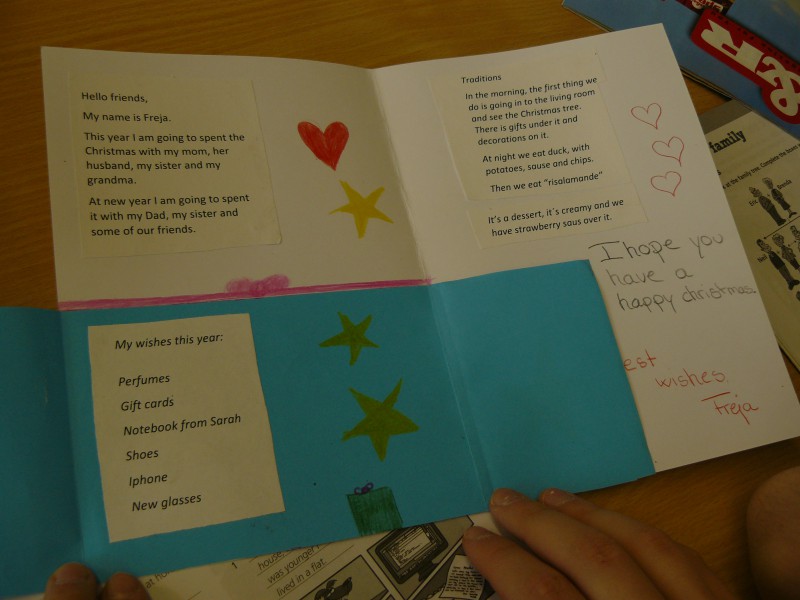 Hello friends,
My name is Freja.
This year I am going to spent the
Christmas with my mom, her
husband, my sister and my
grandma.
At new year I am going to spent
it with my Dad, my sister and
some of our friends.
Traditions
In the morning, the first thing we
do is going in to the living room
and see the Christmas tree.
There is gifts under it and
decorations on it.
At night we eat duck, with
potatoes, sause and chips.
Then we eat "risalamande"
It´s a dessert, it´s creamy and we
have strawberry saus over it.
I hope you
have a
happy christmas.
est
wishes.
Freja
My wishes this year:
Perfumes
Gift cards
Notebook from Sarah
Shoes
Iphone
New glasses
family
at the family tree. Complete the boxes
was younger
lived in a flat